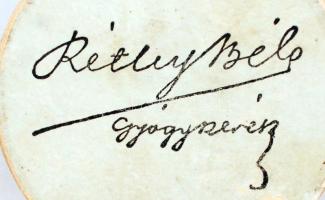 Réthy Béla
Gyógyszerész